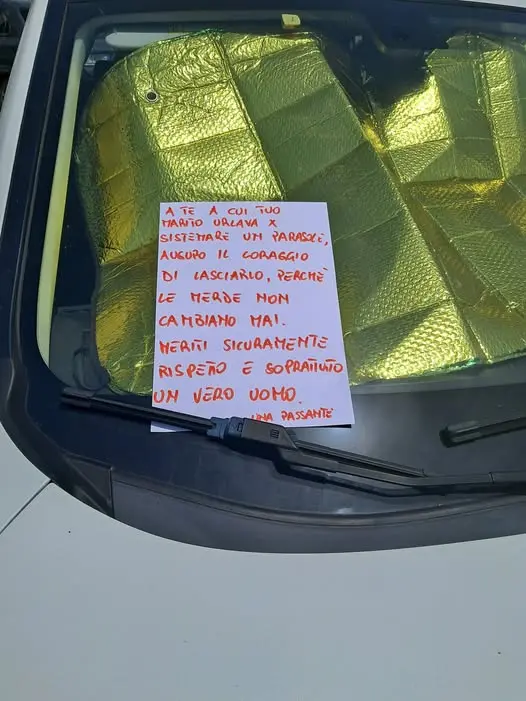 A TE A CUI TUO
MARITO URLAVA X
SISTEMARE UN PARASOLE,
AUGURO IL CORAGGIO
DI LASCIARLO, PERCHÈ
LE MERDE NON
CAMBIANO MAI.
MERITI SICURAMENTE
RISPETO E SOPRATTUTO
UN VERO UOMO.
UNA PASSANTE